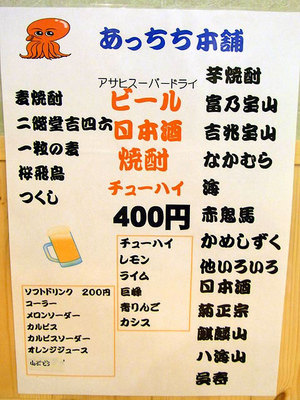 あっちち本舗
アサヒスーパードライ
ビール
日本酒
焼酎
チューハイ
400円
麦焼酎
二階堂吉四六
一粒の麦
桜飛鳥
つくし
芋焼酎
富乃宝山
吉兆宝山
なかむら
海
赤鬼馬
かめしずく
他いろいろ
日本酒
菊正宗
麒麟山
八海山
呉春
チューハイ
レモン
ライム
巨峰
青りんご
カシス
ソフトドリンク 200円
コーラー
メロンソーダー
カルピス
カルピスソーダー
オレンジジュース